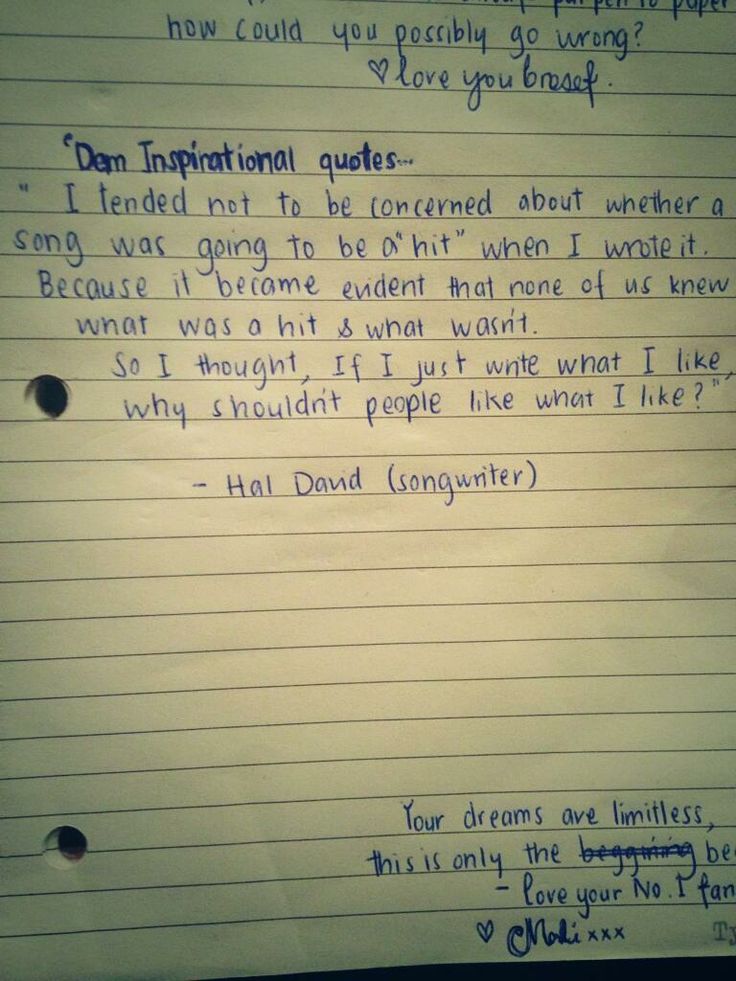 pen to paper
how could you possibly go wrong?
♡ love you
"Dem Inspirational quotes...
" I tended not to be concerned about whether a
song was going to be a "hit" when I wrote it.
Because it became evident that none of us knew
what was a hit & what wasn't.
So I thought, If I just write what I like,
why shouldn't people like what I like?"
- Hal David (songwriter)
Your dreams are limitless,
this is only the beggining be
- love your No. 1 fan
♡ Mali xxx
Ty